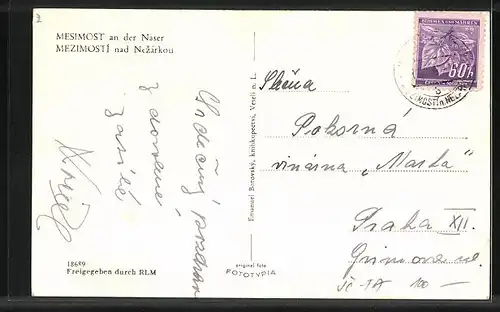 MESIMOST an der Naser
MEZIMOSTÍ nad Nežárkou
BÖHMEN UND MÄHREN
60h
MEZIMOSTÍ n. NEŽ.
Slečna
Pokorná
vinárna „Marta"
Praha XII.
Srdečný pozdrav
z dovolené
zasílá
Emanuel Bouovský, knihkupectví, Veselí n. L.
original foto
FOTOTYPIA
18689
Freigegeben durch RLM
100 —